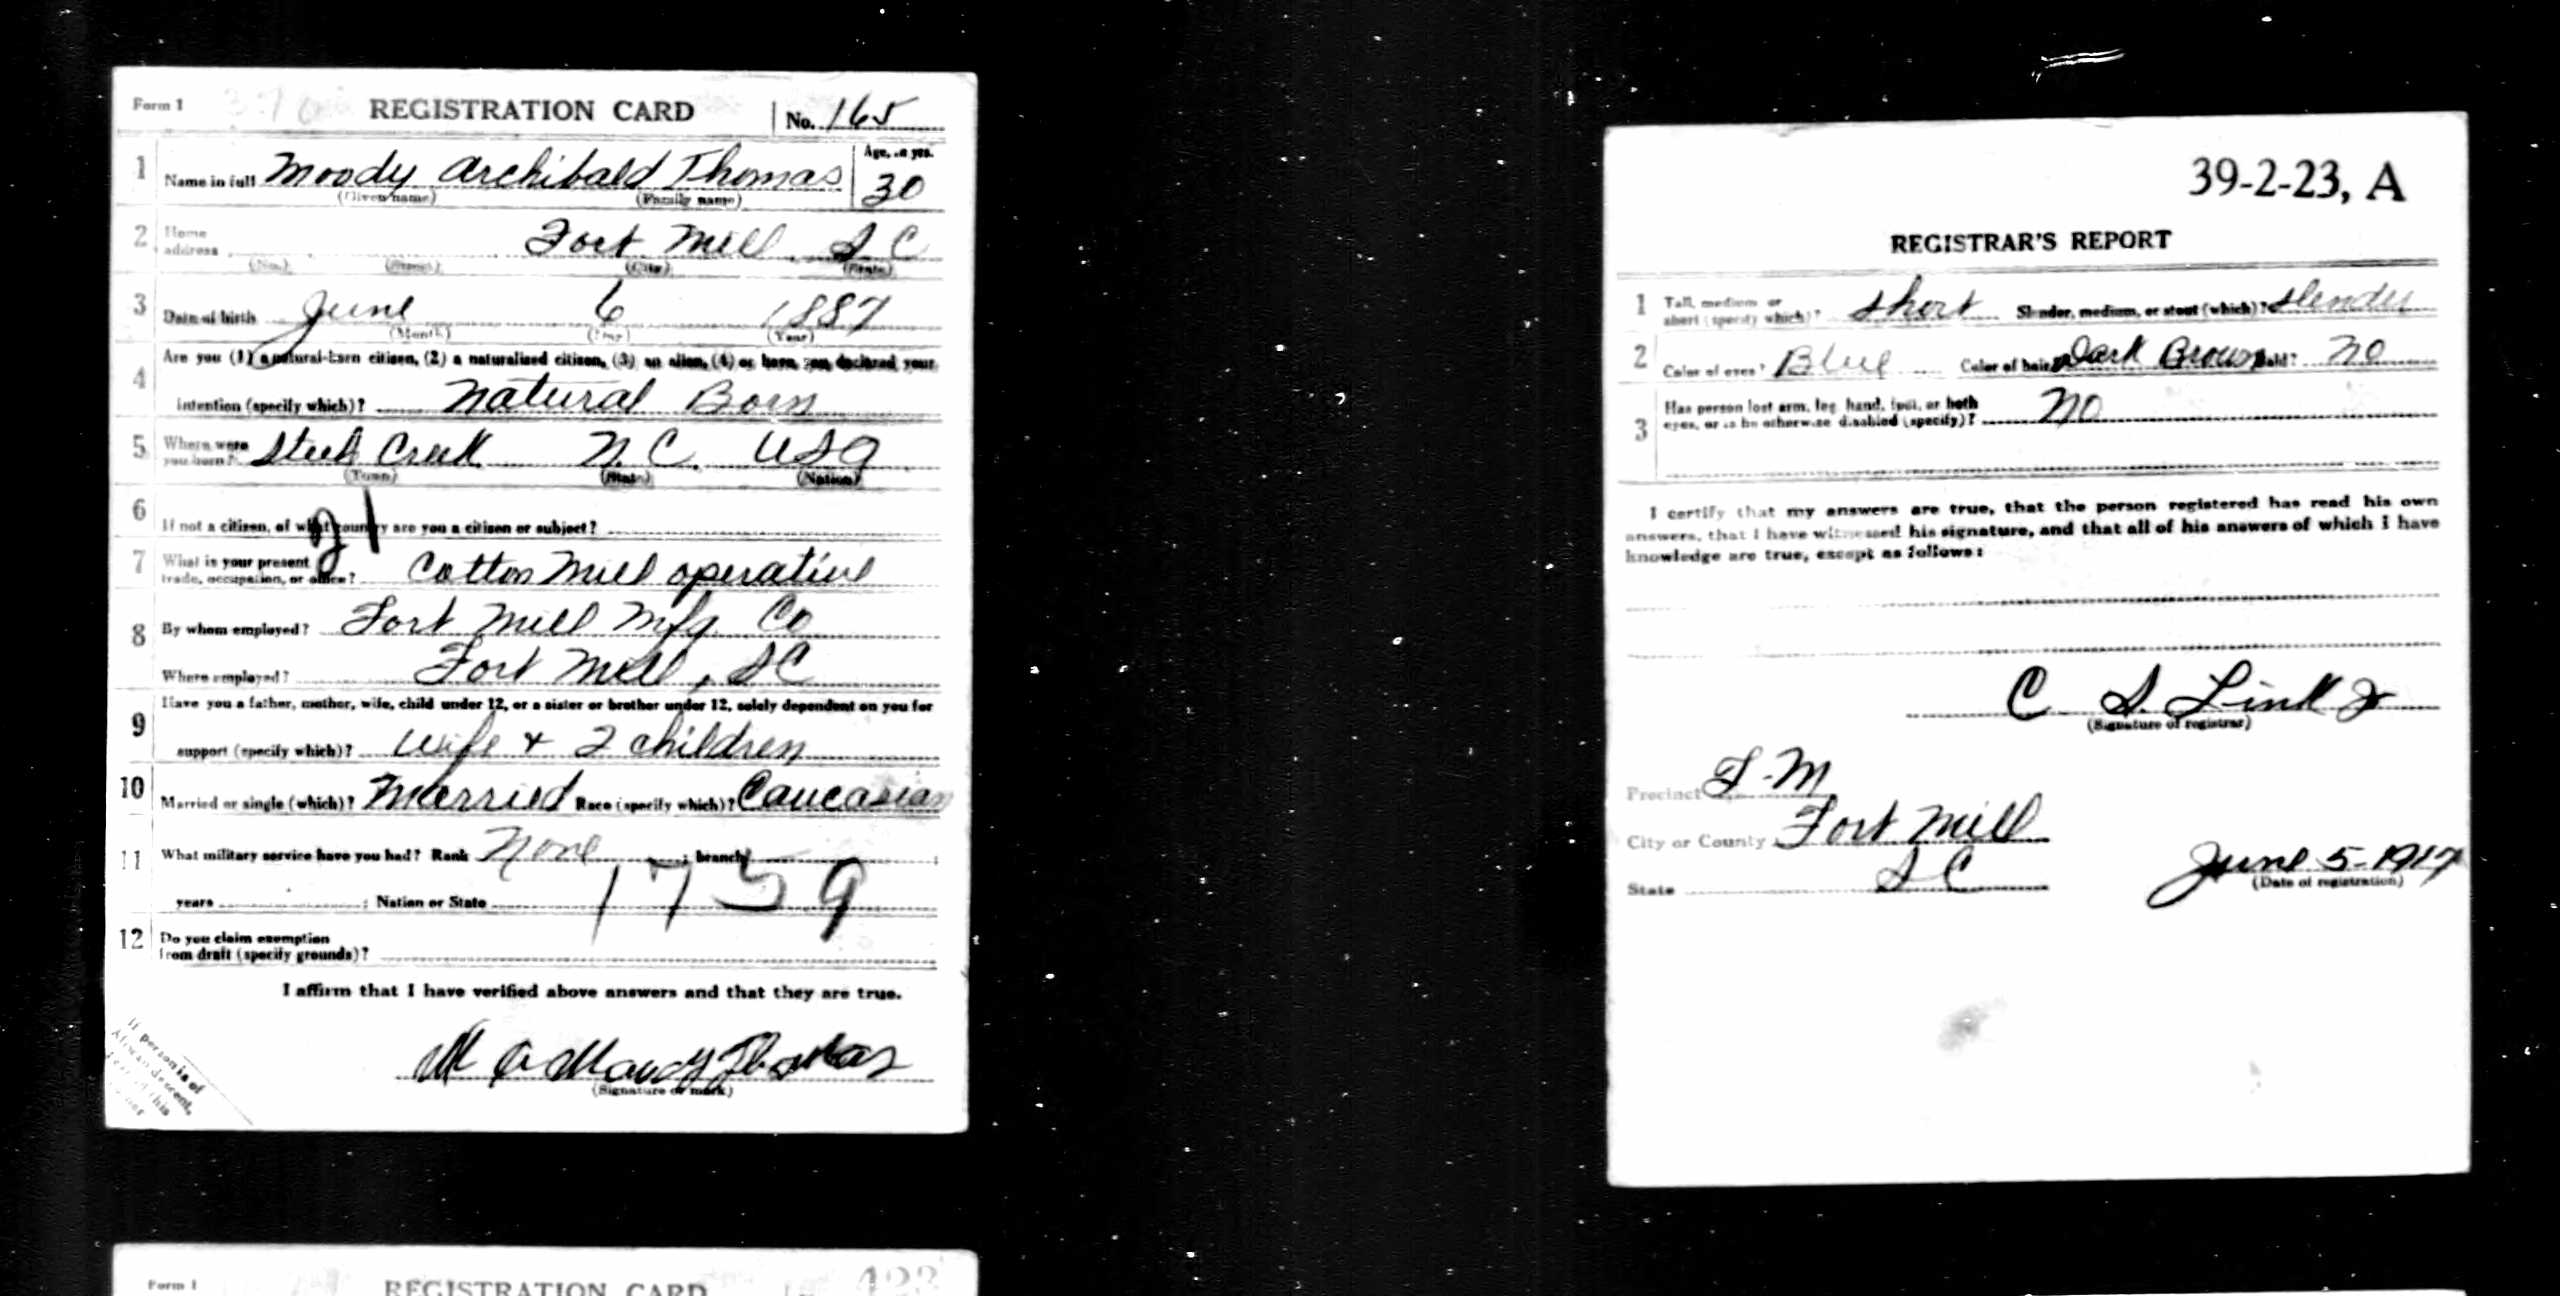 Form 1 370 REGISTRATION CARD No. 165
1 Name in full Moody Archibald Thomas Age, in yrs. 30
(Given name) (Family name)
2 Home address Fort Mill S C
(No.) (Street) (City) (State)
3 Date of birth June 6 1887
(Month) (Day) (Year)
4 Are you (1) a natural-born citizen, (2) a naturalized citizen, (3) an alien, (4) or have you declared your
intention (specify which)? Natural Born
5 Where were you born? Steel Creek N.C. USA
(Town) (State) (Nation)
6 If not a citizen, of what country are you a citizen or subject?
21
7 What is your present trade, occupation, or office? Cotton Mill operative
8 By whom employed? Fort Mill Mfg. Co
Where employed? Fort Mill, SC
9 Have you a father, mother, wife, child under 12, or a sister or brother under 12, solely dependent on you for
support (specify which)? Wife + 2 children
10 Married or single (which)? Married Race (specify which)? Caucasian
11 What military service have you had? Rank None ; branch ;
years ; Nation or State 1759
12 Do you claim exemption
from draft (specify grounds)?
I affirm that I have verified above answers and that they are true.
M A Moody Thomas
(Signature or mark)
If person is of
African descent,
this
corner
39-2-23, A
REGISTRAR'S REPORT
1 Tall, medium or short (specify which)? Short Slender, medium, or stout (which)? Slender
2 Color of eyes? Blue Color of hair? Dark Brown Bald? No
3 Has person lost arm, leg, hand, foot, or both
eyes, or is he otherwise disabled (specify)? No
I certify that my answers are true, that the person registered has read his own
answers, that I have witnessed his signature, and that all of his answers of which I have
knowledge are true, except as follows:
C S. Link Jr
(Signature of registrar)
Precinct F-M
City or County Fort Mill
State S C
June 5-1917
(Date of registration)
Form 1 REGISTRATION CARD 423